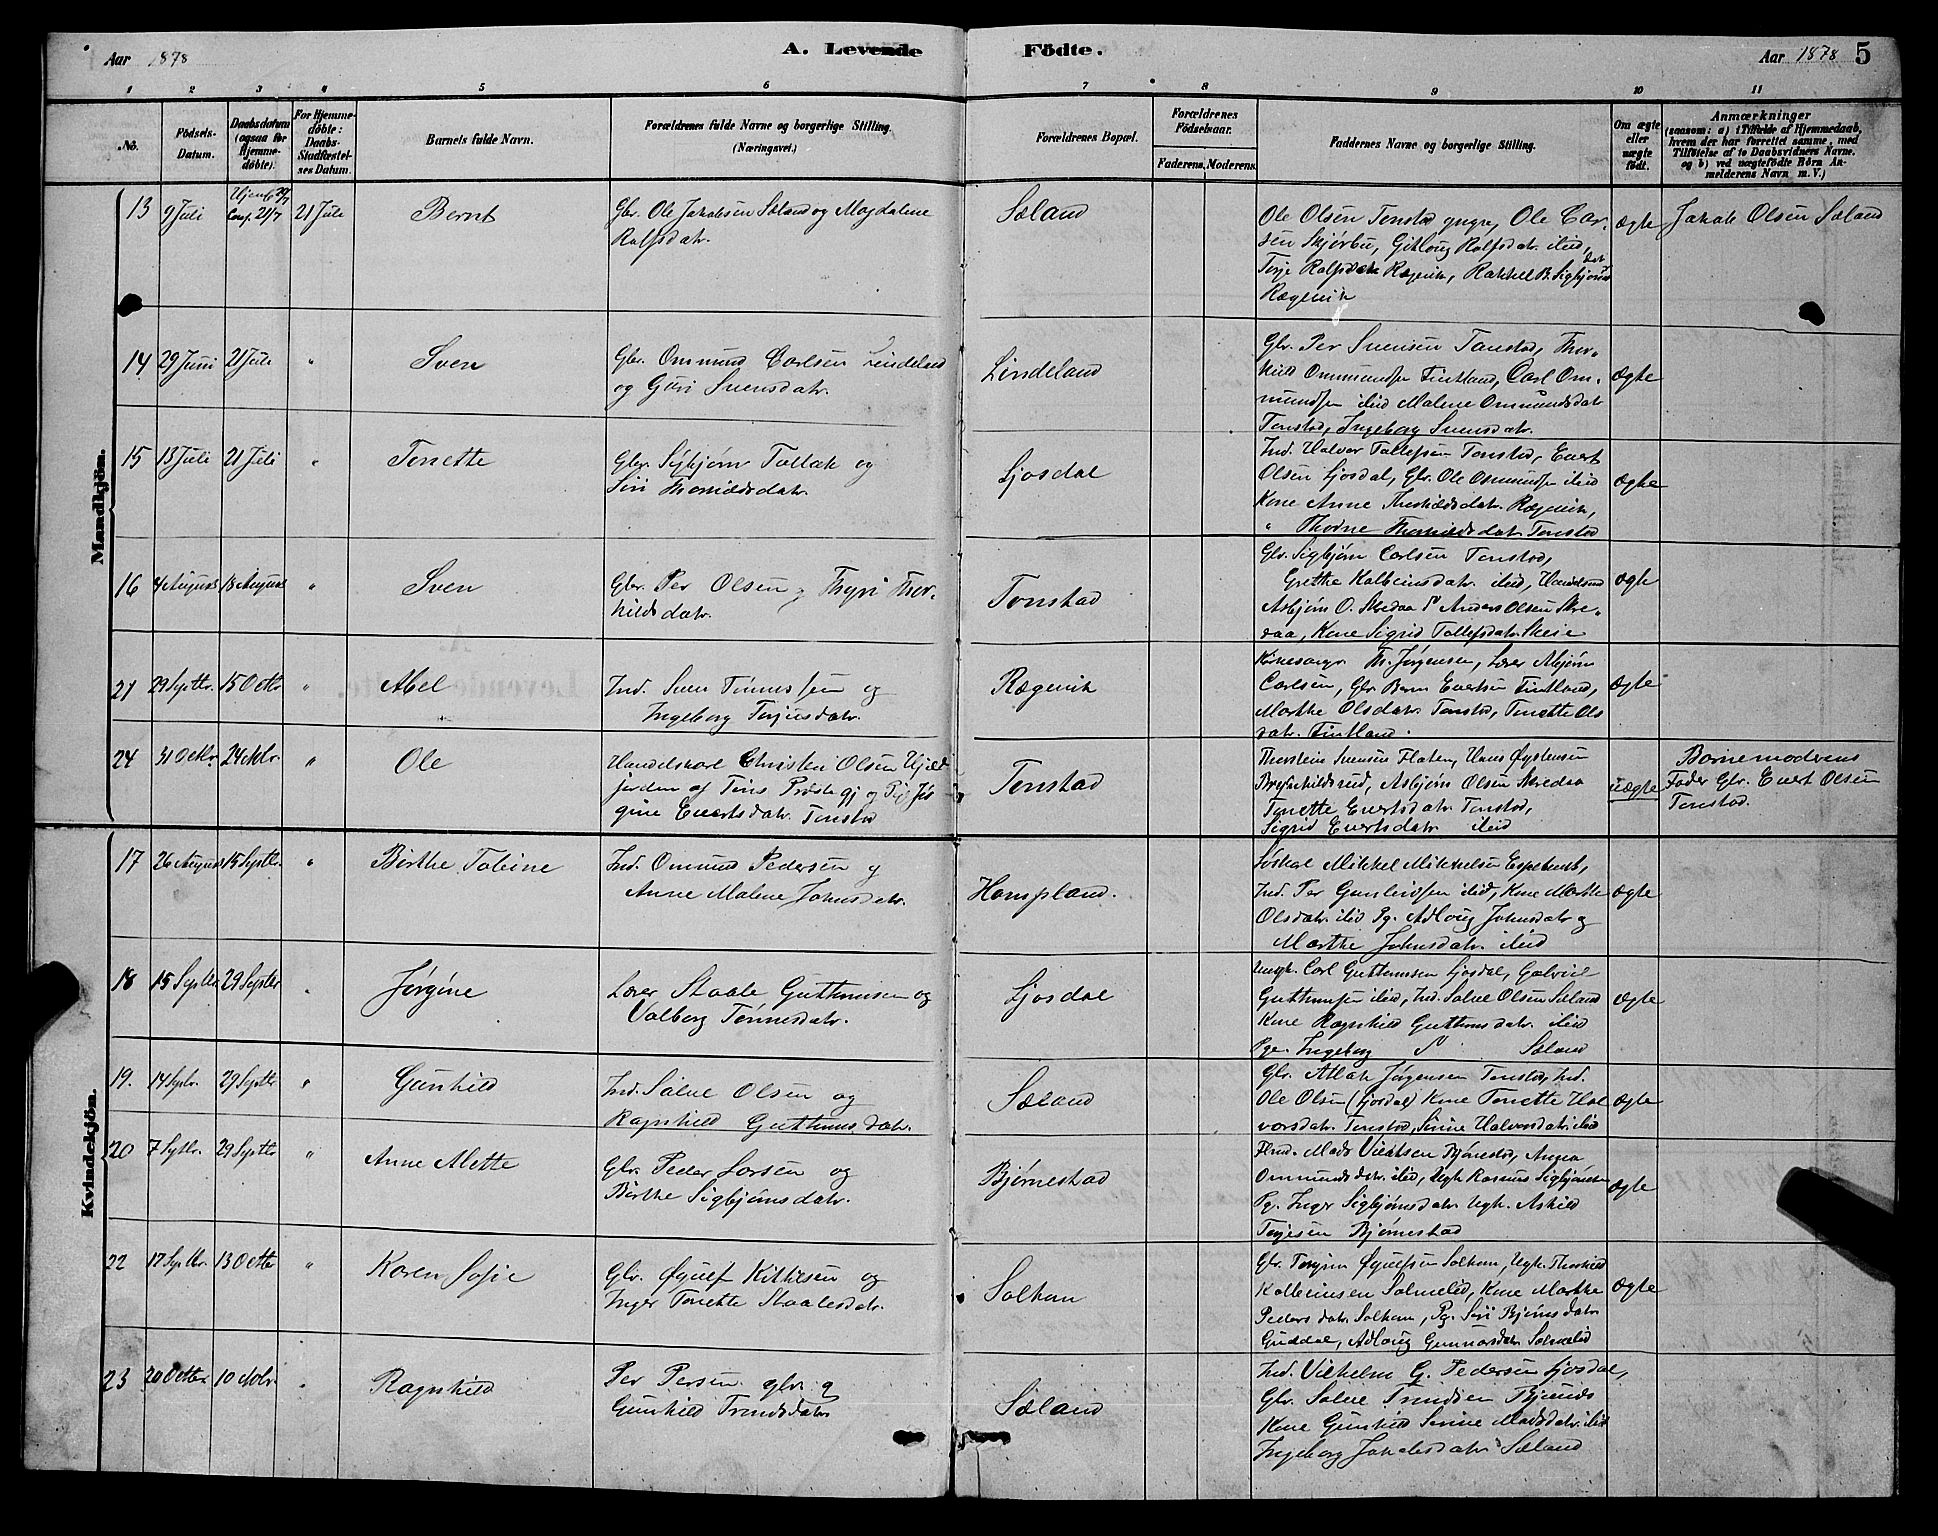 Aar 1878
A. Levende Födte.
Aar 1878 5
1 2 3 4 5 6 7 8 9 10 11
No.
Födsels-
Datum.
Daabsdatum
(ogsaa for
Hjemme-
döbte).
For Hjemme-
döbte:
Daabs-
Stadfæstel-
ses Datum.
Barnets fulde Navn.
Forældrenes fulde Navne og borgerlige Stilling.
(Næringsvei.)
Forældrenes Bopæl.
Forældrenes
Födselsaar.
Faderens. Moderens.
Faddernes Navne og borgerlige Stilling.
Om ægte
eller
uægte
födt.
Anmærkninger
(saasom: a) i Tilfælde af Hjemmedaab,
hvem der har forrettet samme, med
Tilföielse af to Daabsvidners Navne,
og b) ved uægtefödte Börn An-
melderens Navn m. V.)
Mandkjön.
13 9 Juli 21/7 21 Jule
Bernt
Gbr. Ole Jakobsen Sæland og Magdalene
Rolfsdatr.
Sæland
Ole Olsen Tonstad yngre, Ole Car-
sen Skjørbu, Gitlaug Rolfsdatr. ibid,
Terje Rolfsdatr Rægevik, Rakkel B. Sigbjørns
datr
Rægevik
ægte
Jakob Olsen Sæland
14 29 Juni 21 Jule "
Sven
Gbr. Ommund Carlsen Lindeland
og Guri Svensdatr.
Lindeland
Gbr. Per Svensen Tonstad, Thor-
kild Ommundsen Fintland, Carl Om-
mundsen ibid Malene Ommundsdatr
Tonstad, Ingeborg Svensdatr.
ægte
15 13 Juli 21 Juli "
Tonette
Gbr. Sigbjørn Tollak og
Siri Thorkildsdatr.
Ljosdal
Ind. Halvor Tollefsen Tonstad, Evert
Olsen Ljosdal, Gbr. Ole Ommundsen ibid
Kone Anne Thorkildsdatr. Rægevik,
" Thorine Thorkildsdatr Tonstad
ægte
16 4 August 18 August "
Sven
Gbr. Per Olsen og Thyri Thor-
kildsdatr.
Tonstad
Gbr. Sigbjørn Carlsen Tonstad,
Grethe Kolbeinsdatr. ibid, Handelsmd
Asbjørn O. Skredaa & Anders Olsen Skre-
daa, Kone Sigrid Tollefsdatr. Skeie
ægte
21 29 Septbr. 15 Octbr "
Abel
Ind. Sven Tønnessen og
Ingeborg Terjesdatr.
Rægevik
Kirkesanger Th. Jørgensen, Lærer Asbjørn
Carlsen, Gbr Bern Evertsen Fintland,
Marthe Olsdatr. Tonstad, Tonette Ols
datr. Fintland.
ægte
24 31 Octbr. 24 Nbr. "
Ole
Handelskarl Christen Olsen
jorden af Tins Præstegj og Pige
gine Evertsdatr. Tonstad
Tonstad
Thorstein Svensen Flaten, Hans Øystensen
Asbjørn Olsen Skredaa
Tonette Evertsdatr. Tonstad,
Sigrid Evertsdatr ibid
uægte
Barnemoderens
Fader Gbr. Evert Olsen
Tonstad.
Kvindekjön.
17 26 August 15 Septbr. "
Birthe Tobine
Ind. Omund Pedersen og
Anne Malene Johnsdatr.
Hompland.
Løskar Mikkel Mikkelsen Espetveit,
Ind. Per Gunleidsen ibid, Kone Marthe
Olsdatr. ibid Pg. Adlaug Johnsdatr og
Marthe Johnsdatr. ibid
ægte
18 15 Septbr 29 Septbr "
Jørgine
Lærer Staale Guttormsen og
Valborg Tønnesdatr.
Ljosdal
Ungk. Carl Guttormsen Ljosdal, Gabriel
Guttormsen ibid, Ind. Salve Olsen Sæland
Kone Ragnhild Guttormsdatr ibid
Pge. Ingeborg S Sæland
ægte
19. 14 Septbr. 29 Septbr "
Gunhild
Ind. Salve Olsen og
Ragnhild Guttormsdatr.
Sæland
Gbr. Atlak Jørgensen Tonstad, Ind.
Ole Olsen (Ljosdal) Kone Tonette Hal
vorsdatr. Tonstad, Sirine Halvorsdatr. ibid
ægte
20 7 Septbr. 29 Septbr "
Anne Alette
Gbr. Peder Larsen og
Birthe Sigbjørnsdatr.
Bjørnestad
Mads Bjørnestad,
Ommundsdatr. ibid, Ungk. Rasmus Sigbjørnsen
Pg. Inger Sigbjørnsdatr Ungk. Askild
Terjesen Bjørnestad
ægte
22 17 Septbr. 13 Octbr "
Karen Sofie
Gbr. Øyulf Kittilsen og
Inger Tonette Staalesdatr.
Solhom
Gbr. Torgrim Øyulfsen Solhom, Ungk. Thorkild
Kolbeinsen Salmelid, Kone Marthe
Pedersdatr. Solhom, Pg. Siri Bjørnsdatr
Guddal, Adlaug Gunnarsdatr Salmelid
ægte
23 20 Octbr. 10 Nobr. "
Ragnhild
Per Persen. gbr. og
Gunhild Trondsdatr
Sæland
Ind. Vilhelm G. Pedersen Ljosdal,
Gbr. Salve Trondsen
Kone Gunhild Serine Madsdatr. ibid
Ingeborg Jakobsdatr Sæland